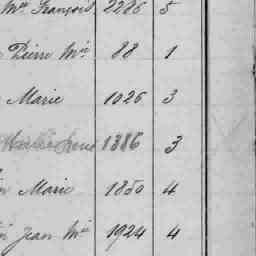 Mie François 2286 5
Pierre Mie 88 1
Marie 1026 3
1386 3
Marie 1850 4
Jean Mie 1924 4